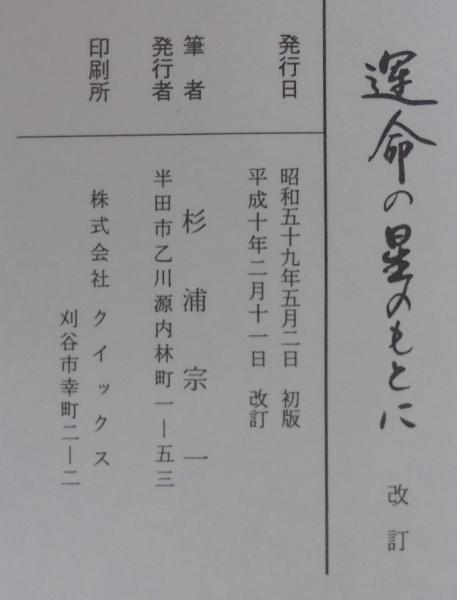 運命の星のもとに 改訂
発行日 昭和五十九年五月二日 初版
平成十年二月十一日 改訂
筆者 杉浦宗一
発行者 半田市乙川源内林町一―五三
印刷所 株式会社クイックス
刈谷市幸町二―二